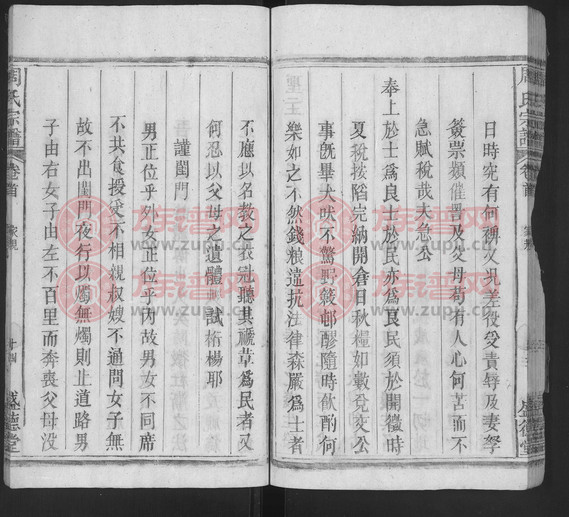 日時究有何裨又況差役受責辱及妻孥
簽票類催詈及父母苟有人心何苦而不
急賦稅哉夫急公
奉上於士爲良士於民亦爲良民須於開徵時
夏稅按陌完納開倉日秋糧如數兌交公
事旣畢犬吠不驚野簌邨醪隨時飲酌何
樂如之不然錢糧違抗法律森嚴爲士者
不應以名教之衣冠聽其褫革爲民者又
何忍以父母之遺體試桁楊耶
謹閨門
男正位乎外女正位乎內故男女不同席
不共食授受不相親叔嫂不通問女子無
故不出閨門夜行以燭無燭則止道路男
子由右女子由左不百里而奔喪父母沒
周氏宗譜
卷首
家規
十四
盛德堂
周氏宗譜
卷首
盛德堂
族谱网
www.zupu.cn
族谱网
www.zupu.cn